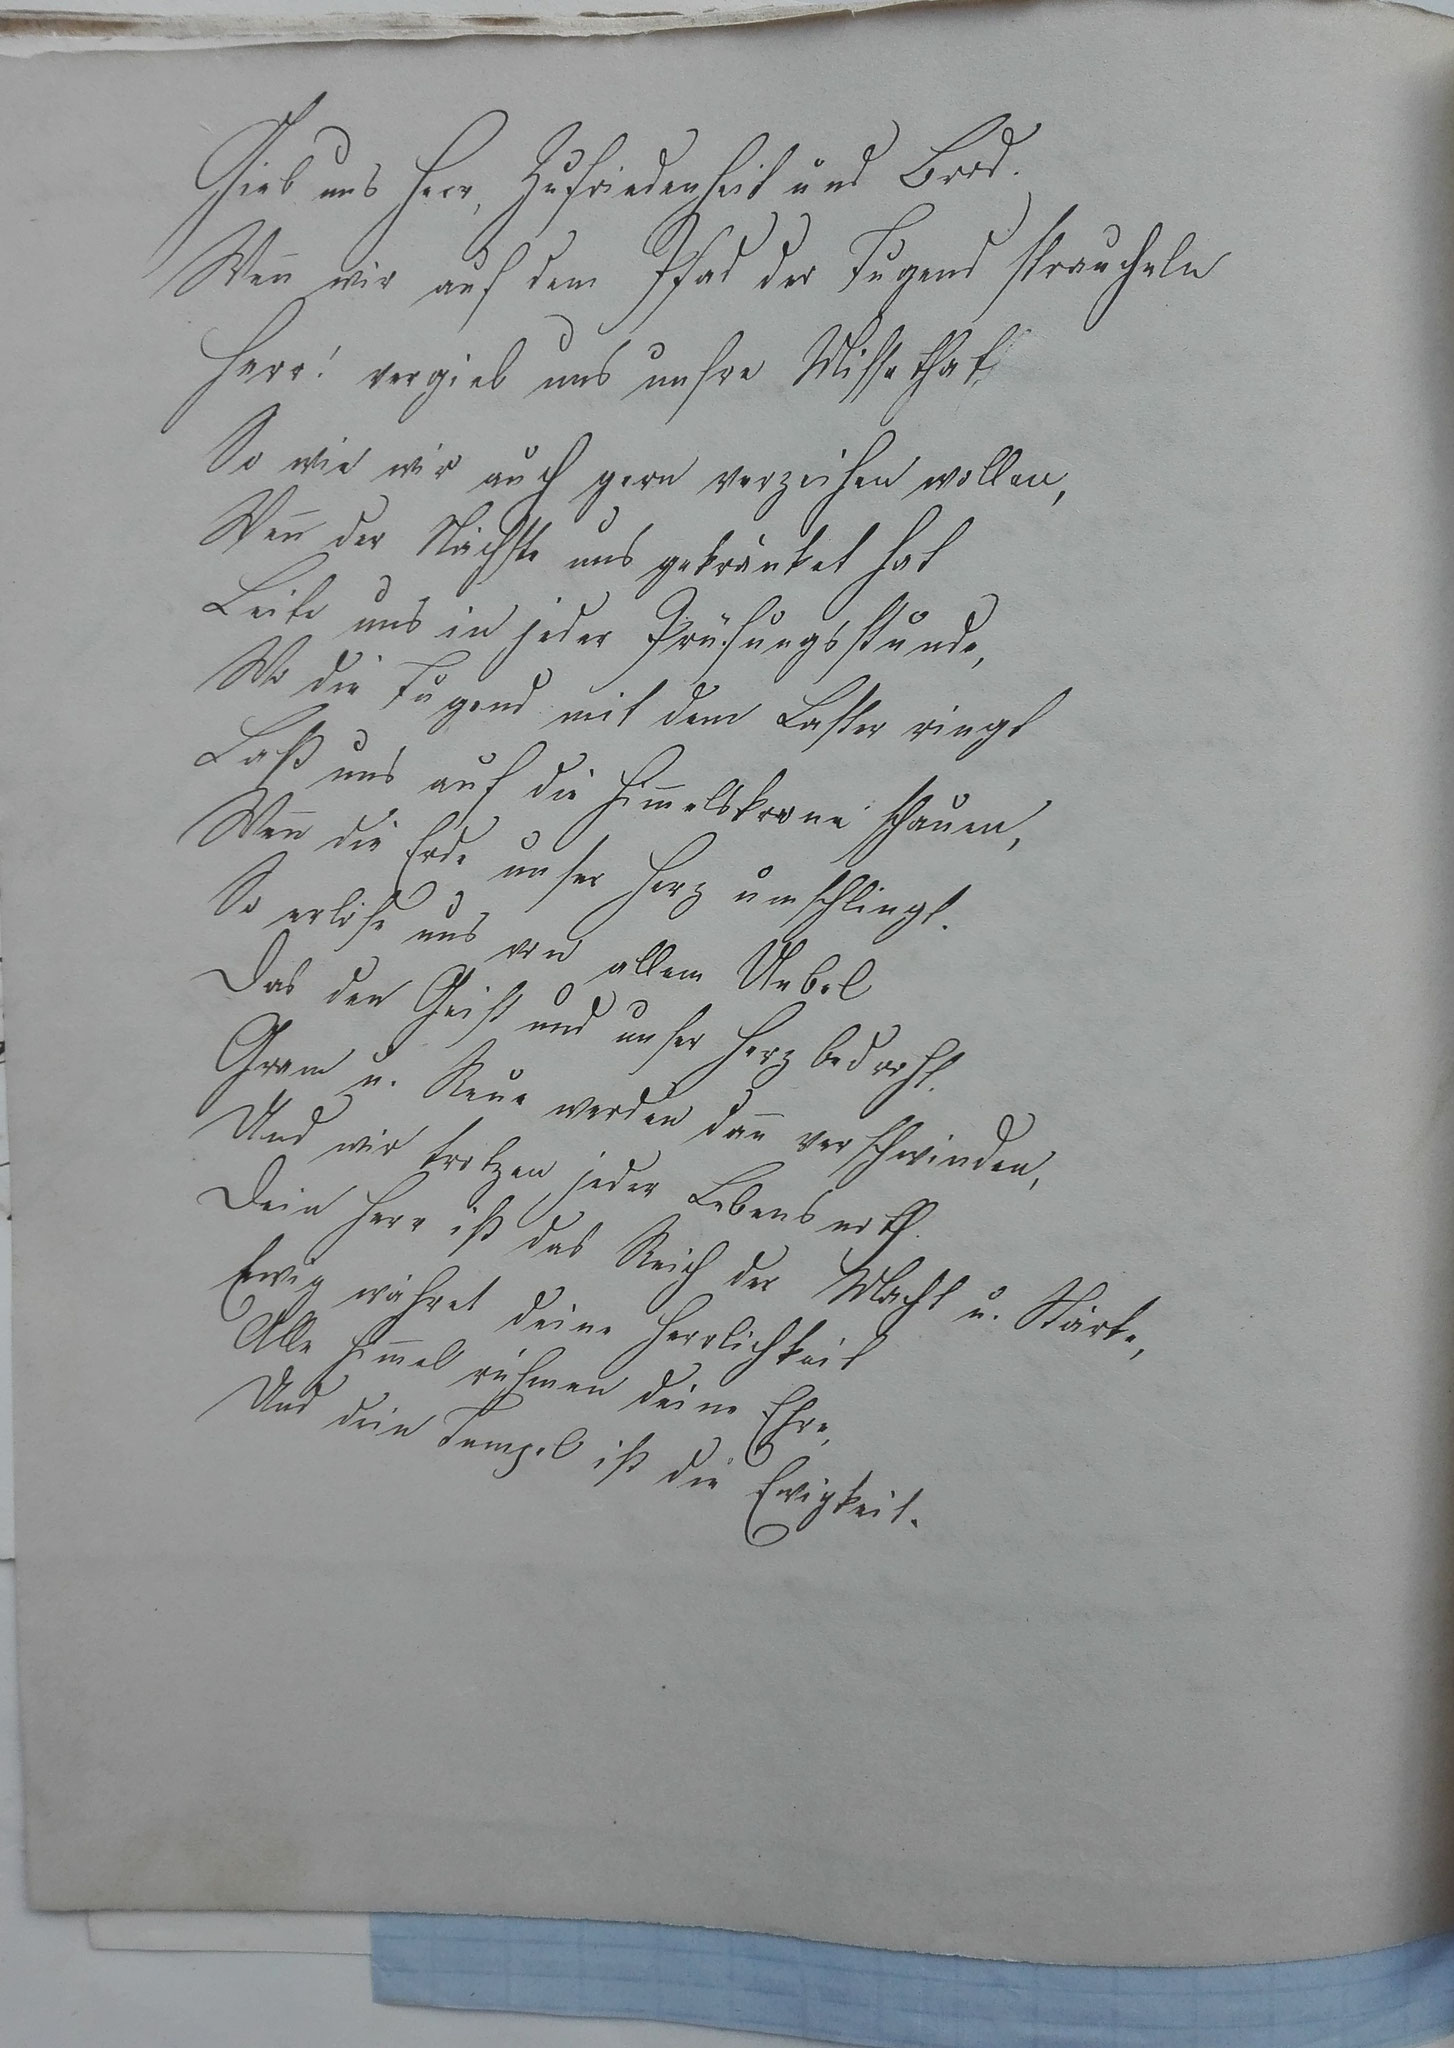 Gieb uns Herr, Zufriedenheit und Brod.
Wen̄ wir auf dem Pfad der Tugend straucheln
Herr! vergieb uns unsre Missethat
So wie wir auch gern verzeihen wollen,
Wen̄ der Nächste uns gekränket hat
Leite uns in jeder Prüfungsstunde,
Wo die Tugend mit dem Laster ringt
Laß uns auf die Him̄elskrone schauen,
Wen̄ die Erde unser Herz umschlingt.
So erlöse uns von allem Uebel
Das den Geist und unser Herz bedroht.
Gram u. Reue werden dan̄ verschwinden,
Und wir trotzen jeder Lebensnoth.
Dein Herr ist das Reich der Macht u. Stärke,
Ewig währet deine Herrlichkeit
Alle Him̄el rühmen deine Ehre,
Und dein Tempel ist die Ewigkeit.